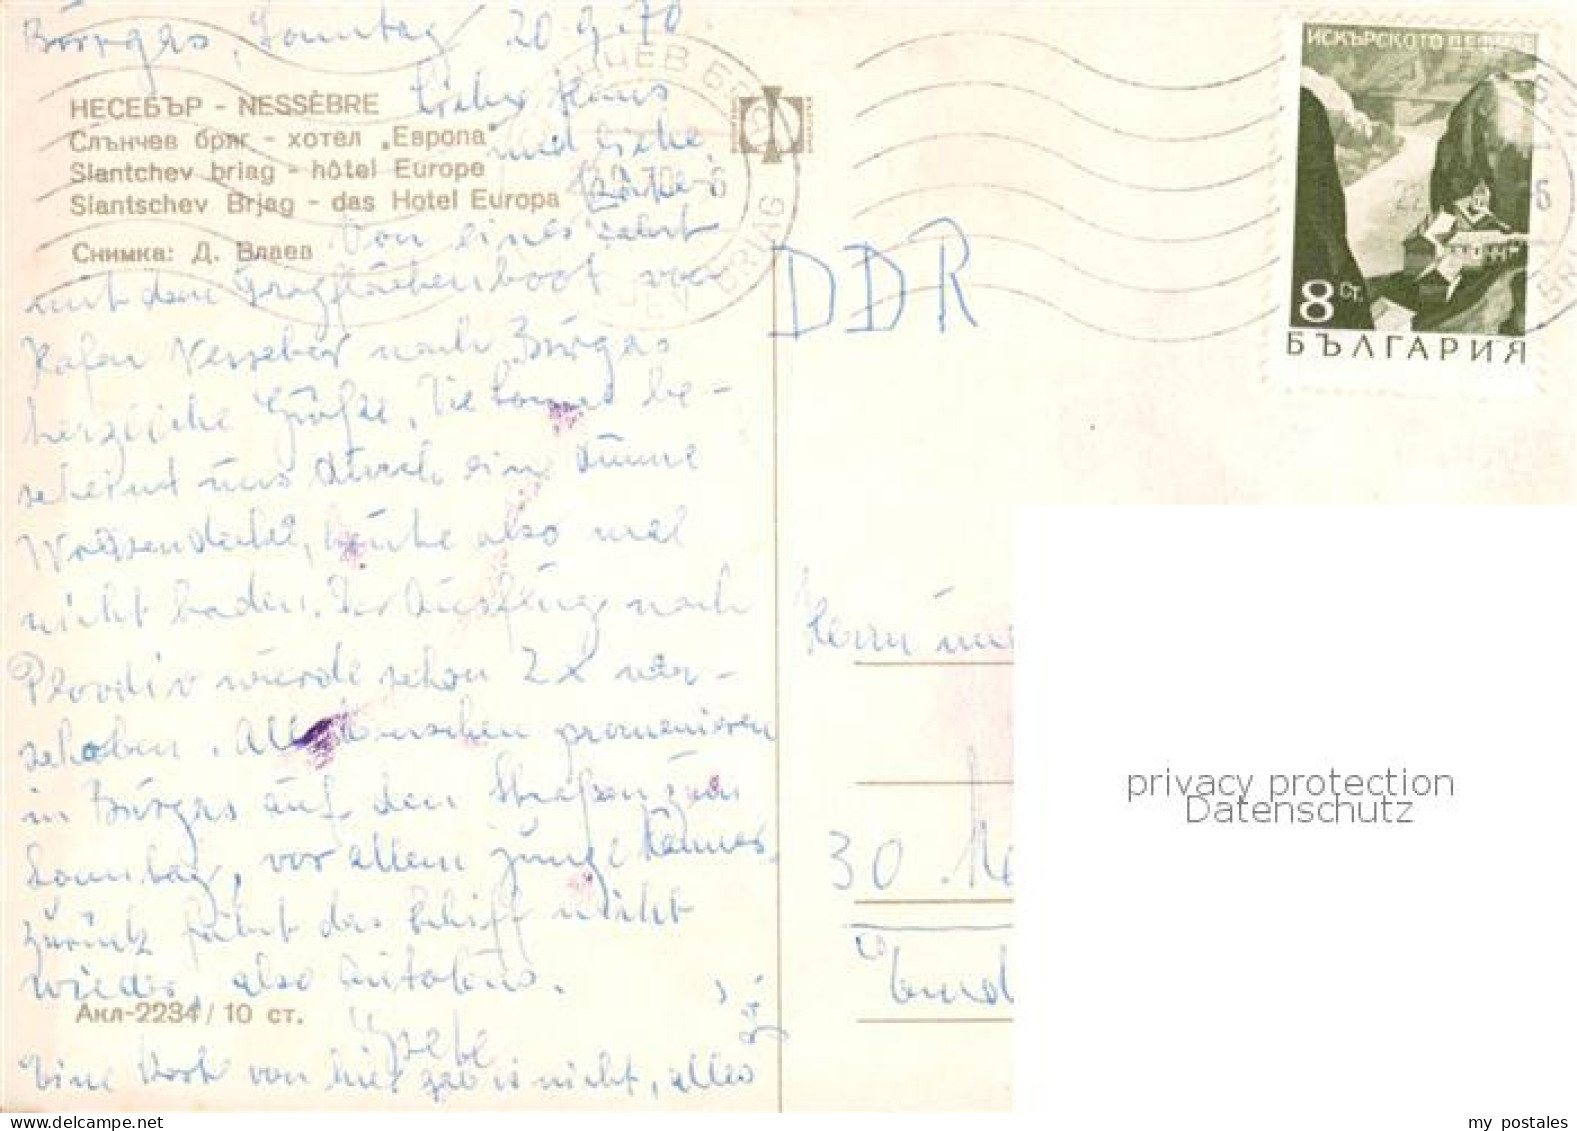 Burgas, Sonntag 20.9.70
НЕСЕБЪР - NESSÈBRE
Слънчев бряг - хотел „Европа"
Slantchev briag - hôtel Europe
Slantschev Brjag - das Hotel Europa
Снимка: Д. Влаев
Liebe Haus
und liebe
Von einer Fahrt
mit dem Tragflächenboot vom
Hafen Nessebar nach Burgas
herzliche Grüße. Die Sonne be-
scheint uns durch eine dünne
Wolkendecke, heute also mal
nicht baden. Der Ausflug nach
Plovdiv wurde schon 2x ver-
schoben. Alle Menschen promenieren
in Burgas auf den Straßen zum
Sonntag, vor allem junge Männer.
Zurück fährt das Schiff nicht
wieder, also Autobus.
Акл-2234 / 10 ст.
Eine Post von hier gab es nicht, alles
ИСКЪРСКОТО ДЕФИЛЕ
8 СТ.
БЪЛГАРИЯ
DDR
Herrn und
30
privacy protection
Datenschutz
my postales